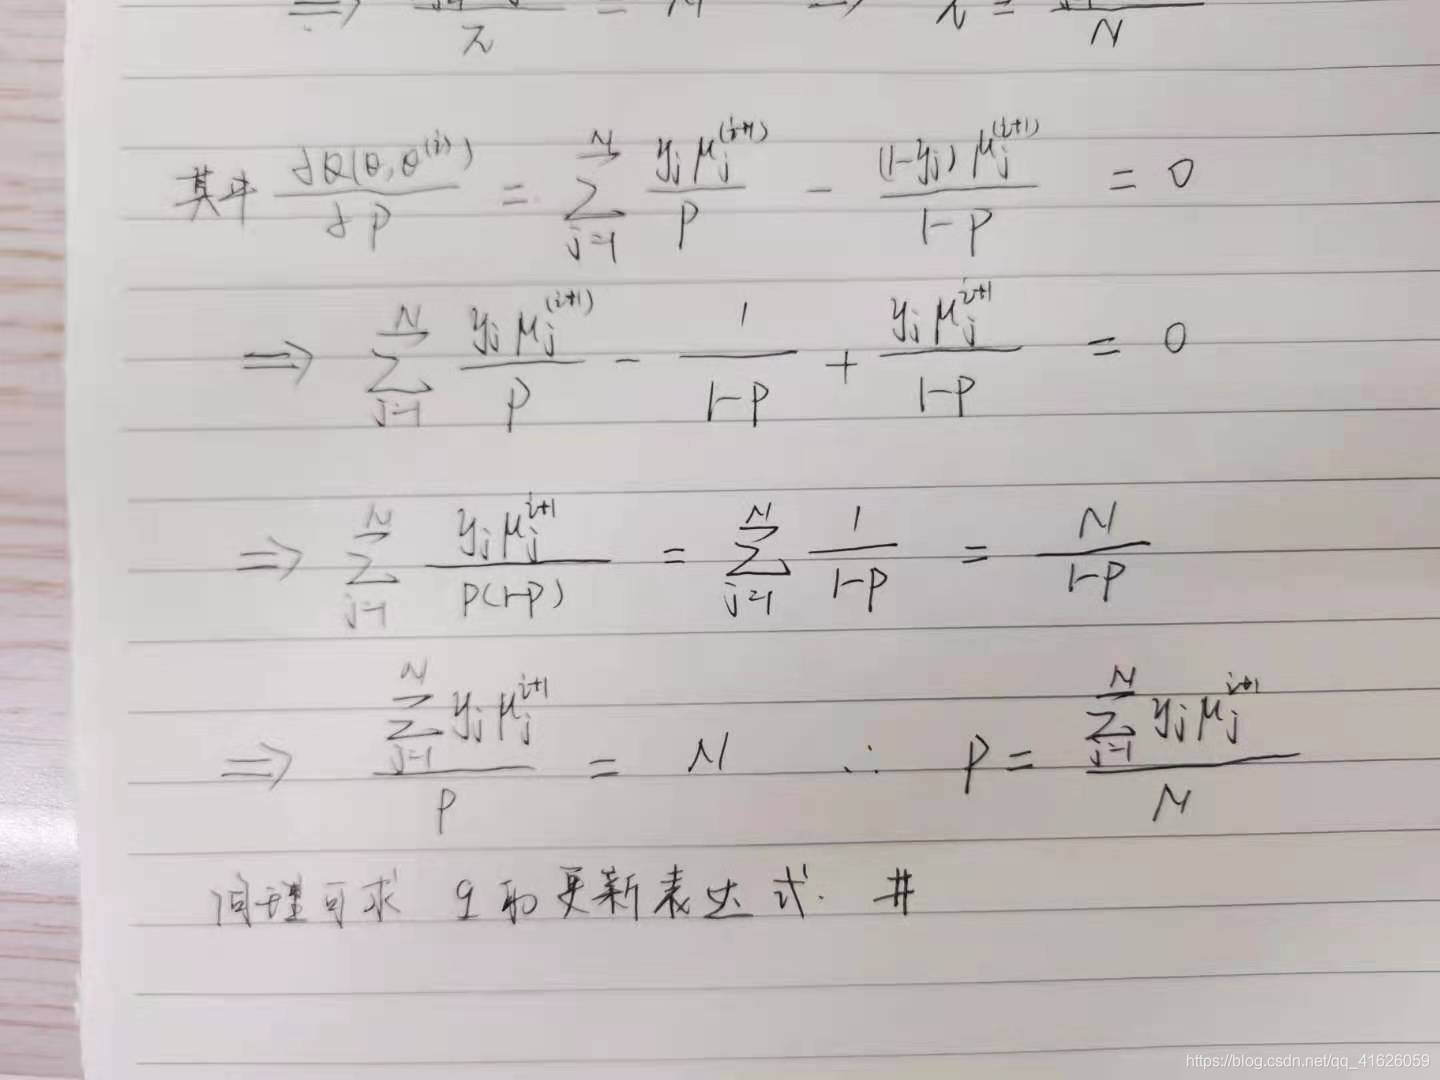 ⇒ / π = N ⇒ π = / N
其中 ∂Q(θ,θ^(i)) / ∂P = ∑_{j=1}^{N} y_j μ_j^(i+1) / P - (1-y_j) μ_j^(i+1) / 1-P = 0
⇒ ∑_{j=1}^{N} y_j μ_j^(i+1) / P - 1 / 1-P + y_j μ_j^{i+1} / 1-P = 0
⇒ ∑_{j=1}^{N} y_j μ_j^{i+1} / P(1-P) = ∑_{j=1}^{N} 1 / 1-P = N / 1-P
⇒ ∑_{j=1}^{N} y_j μ_j^{i+1} / P = N ∴ P = ∑_{j=1}^{N} y_j μ_j^{i+1} / N
同理可求 q 的更新表达式. #
https://blog.csdn.net/qq_41626059